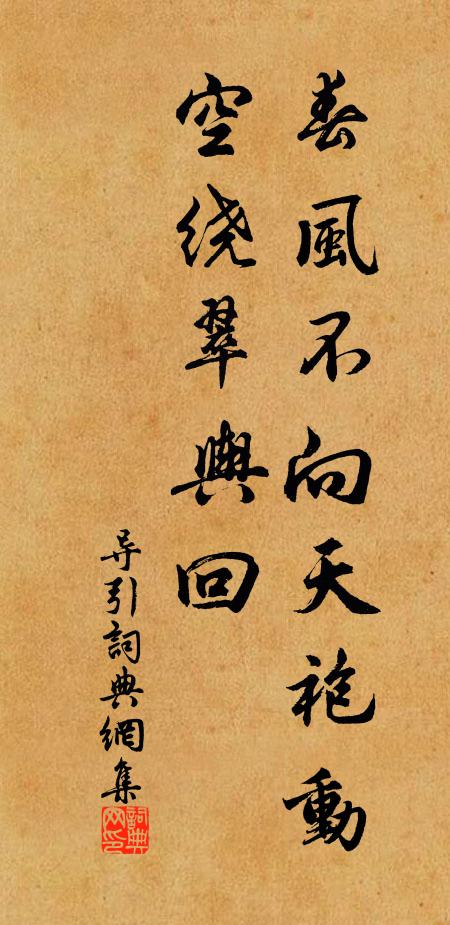 春風不向天袍動
空绕翠輿回
导引詞典網集
詞典网印